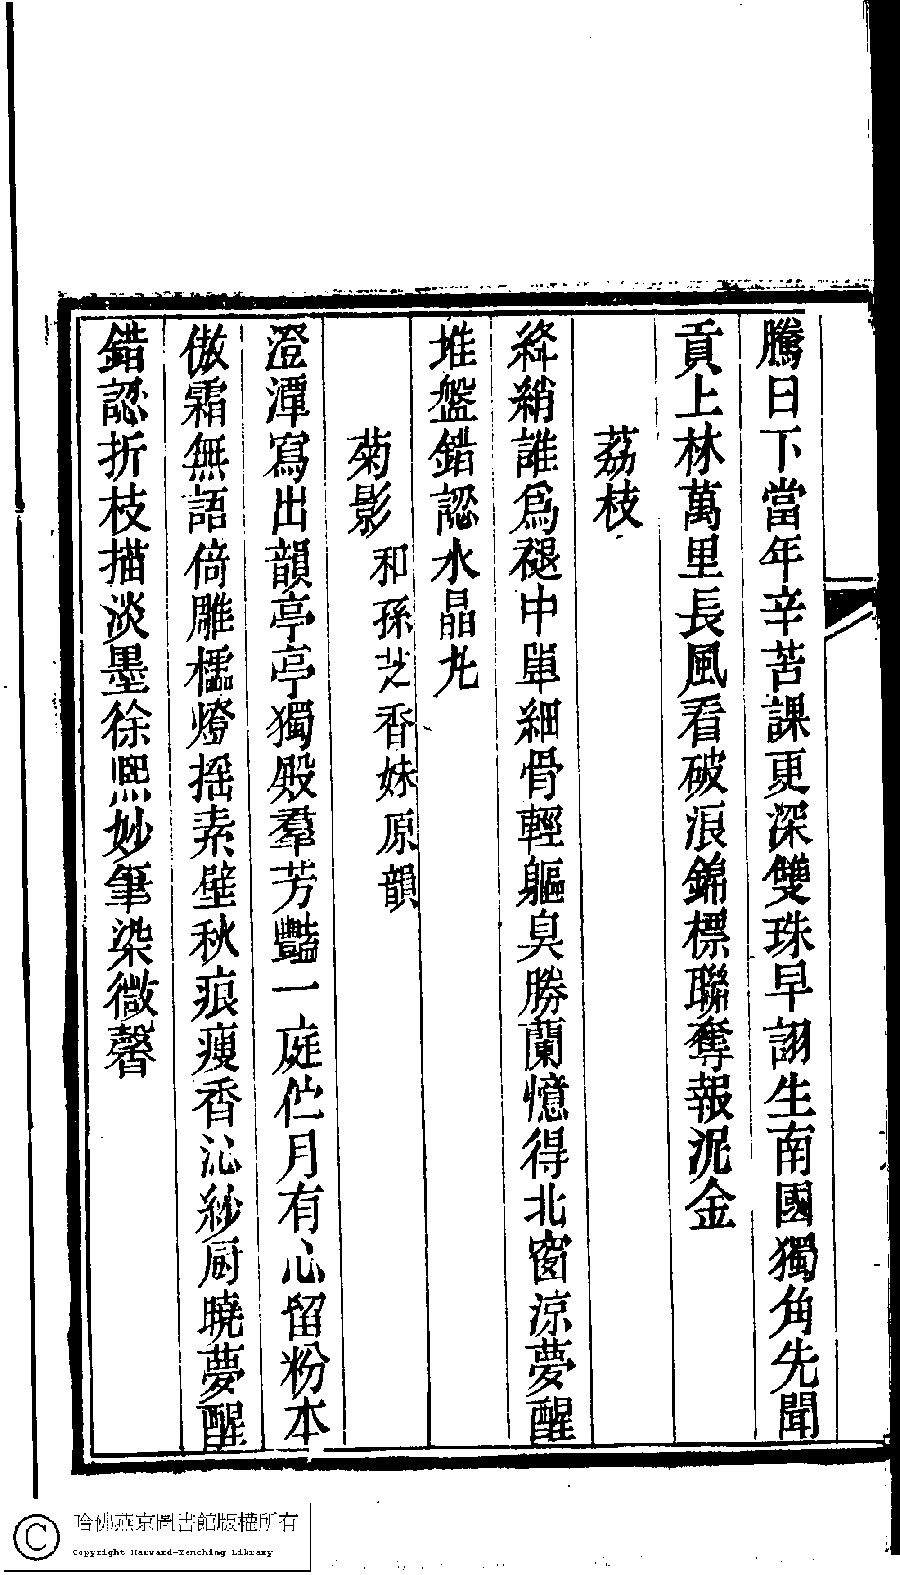 騰日下當年辛苦課更深雙珠早詡生南國獨角先聞
貢上林萬里長風看破浪錦標聯奪報泥金
荔枝
絳綃誰爲褪中單細骨輕軀臭勝蘭憶得北窗涼夢醒
堆盤錯認水晶丸
菊影和孫芝香妹原韻
澄潭寫出韻亭亭獨殿羣芳豔一庭伫月有心留粉本
傲霜無語倚雕櫺燈摇素壁秋痕瘦香沁紗厨曉夢醒
錯認折枝描淡墨徐熙妙筆染微馨
哈佛燕京圖書館版權所有
Copyright Harvard-Yenching Library